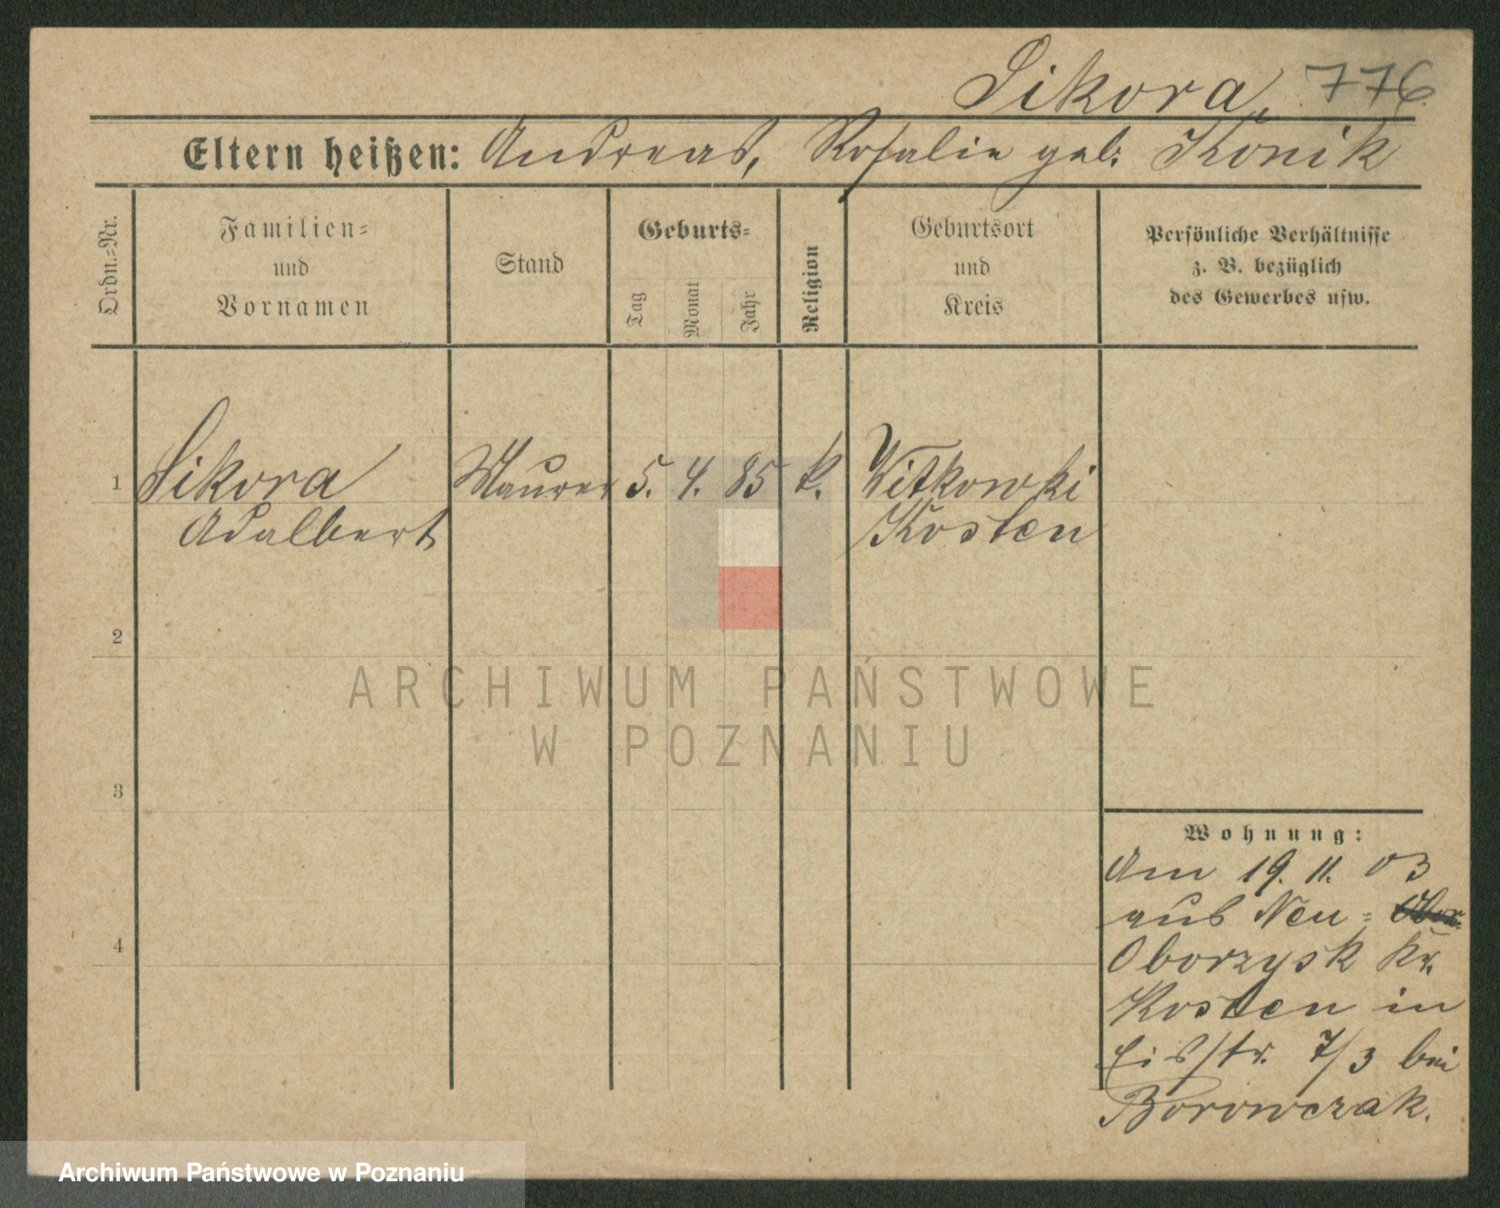 Sikora, 776
Eltern heißen: Andreas, Rosalie geb. Konik
Ordn.-Nr.
Familien-
und
Vornamen
Stand
Geburts-
Tag
Monat
Jahr
Religion
Geburtsort
und
Kreis
Persönliche Verhältnisse
z. B. bezüglich
des Gewerbes usw.
1 Sikora Maurer 5. 4. 85 k. Witkowki
Adalbert Kosten
2
3
4
Wohnung:
Am 19. 11. 03
aus Neu-
Oborzysk Kr.
Kosten in
7/3 bei
Borowczak.
ARCHIWUM PAŃSTWOWE
W POZNANIU
Archiwum Państwowe w Poznaniu